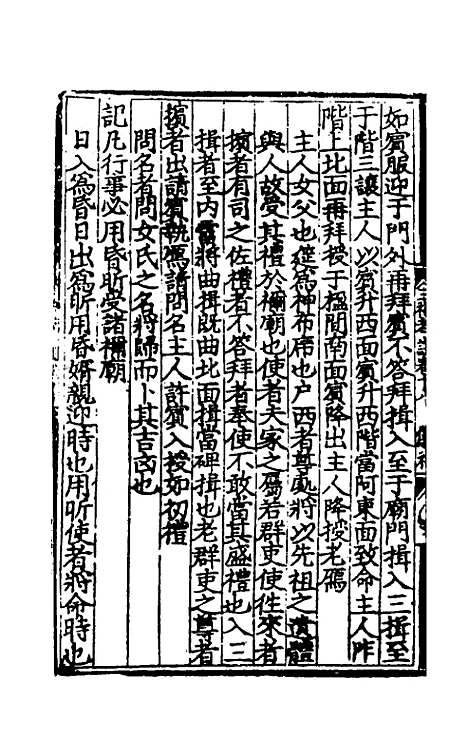 如賓服迎于門外再拜賓不答拜揖入至于廟門揖入三揖至
于階三讓主人以賓升西面賓升西階當阿東面致命主人阼
階上北面再拜授于楹間南面賓降出主人降授老鴈
主人女父也筵爲神布席也户西者尊處將以先祖之遺體
與人故受其禮於禰廟也使者夫家之屬若群吏使往來者
擯者有司之佐禮者不答拜者奉使不敢當其盛禮也入三
揖者至内霤將曲揖既曲北面揖當碑揖也老群吏之尊者
擯者出請賓執鴈請問名主人許賓入授如初禮
問名者問女氏之名將歸而卜其吉凶也
記凡行事必用昏昕受諸禰廟
日入爲昏日出爲昕用昏婿親迎時也用昕使者將命時也